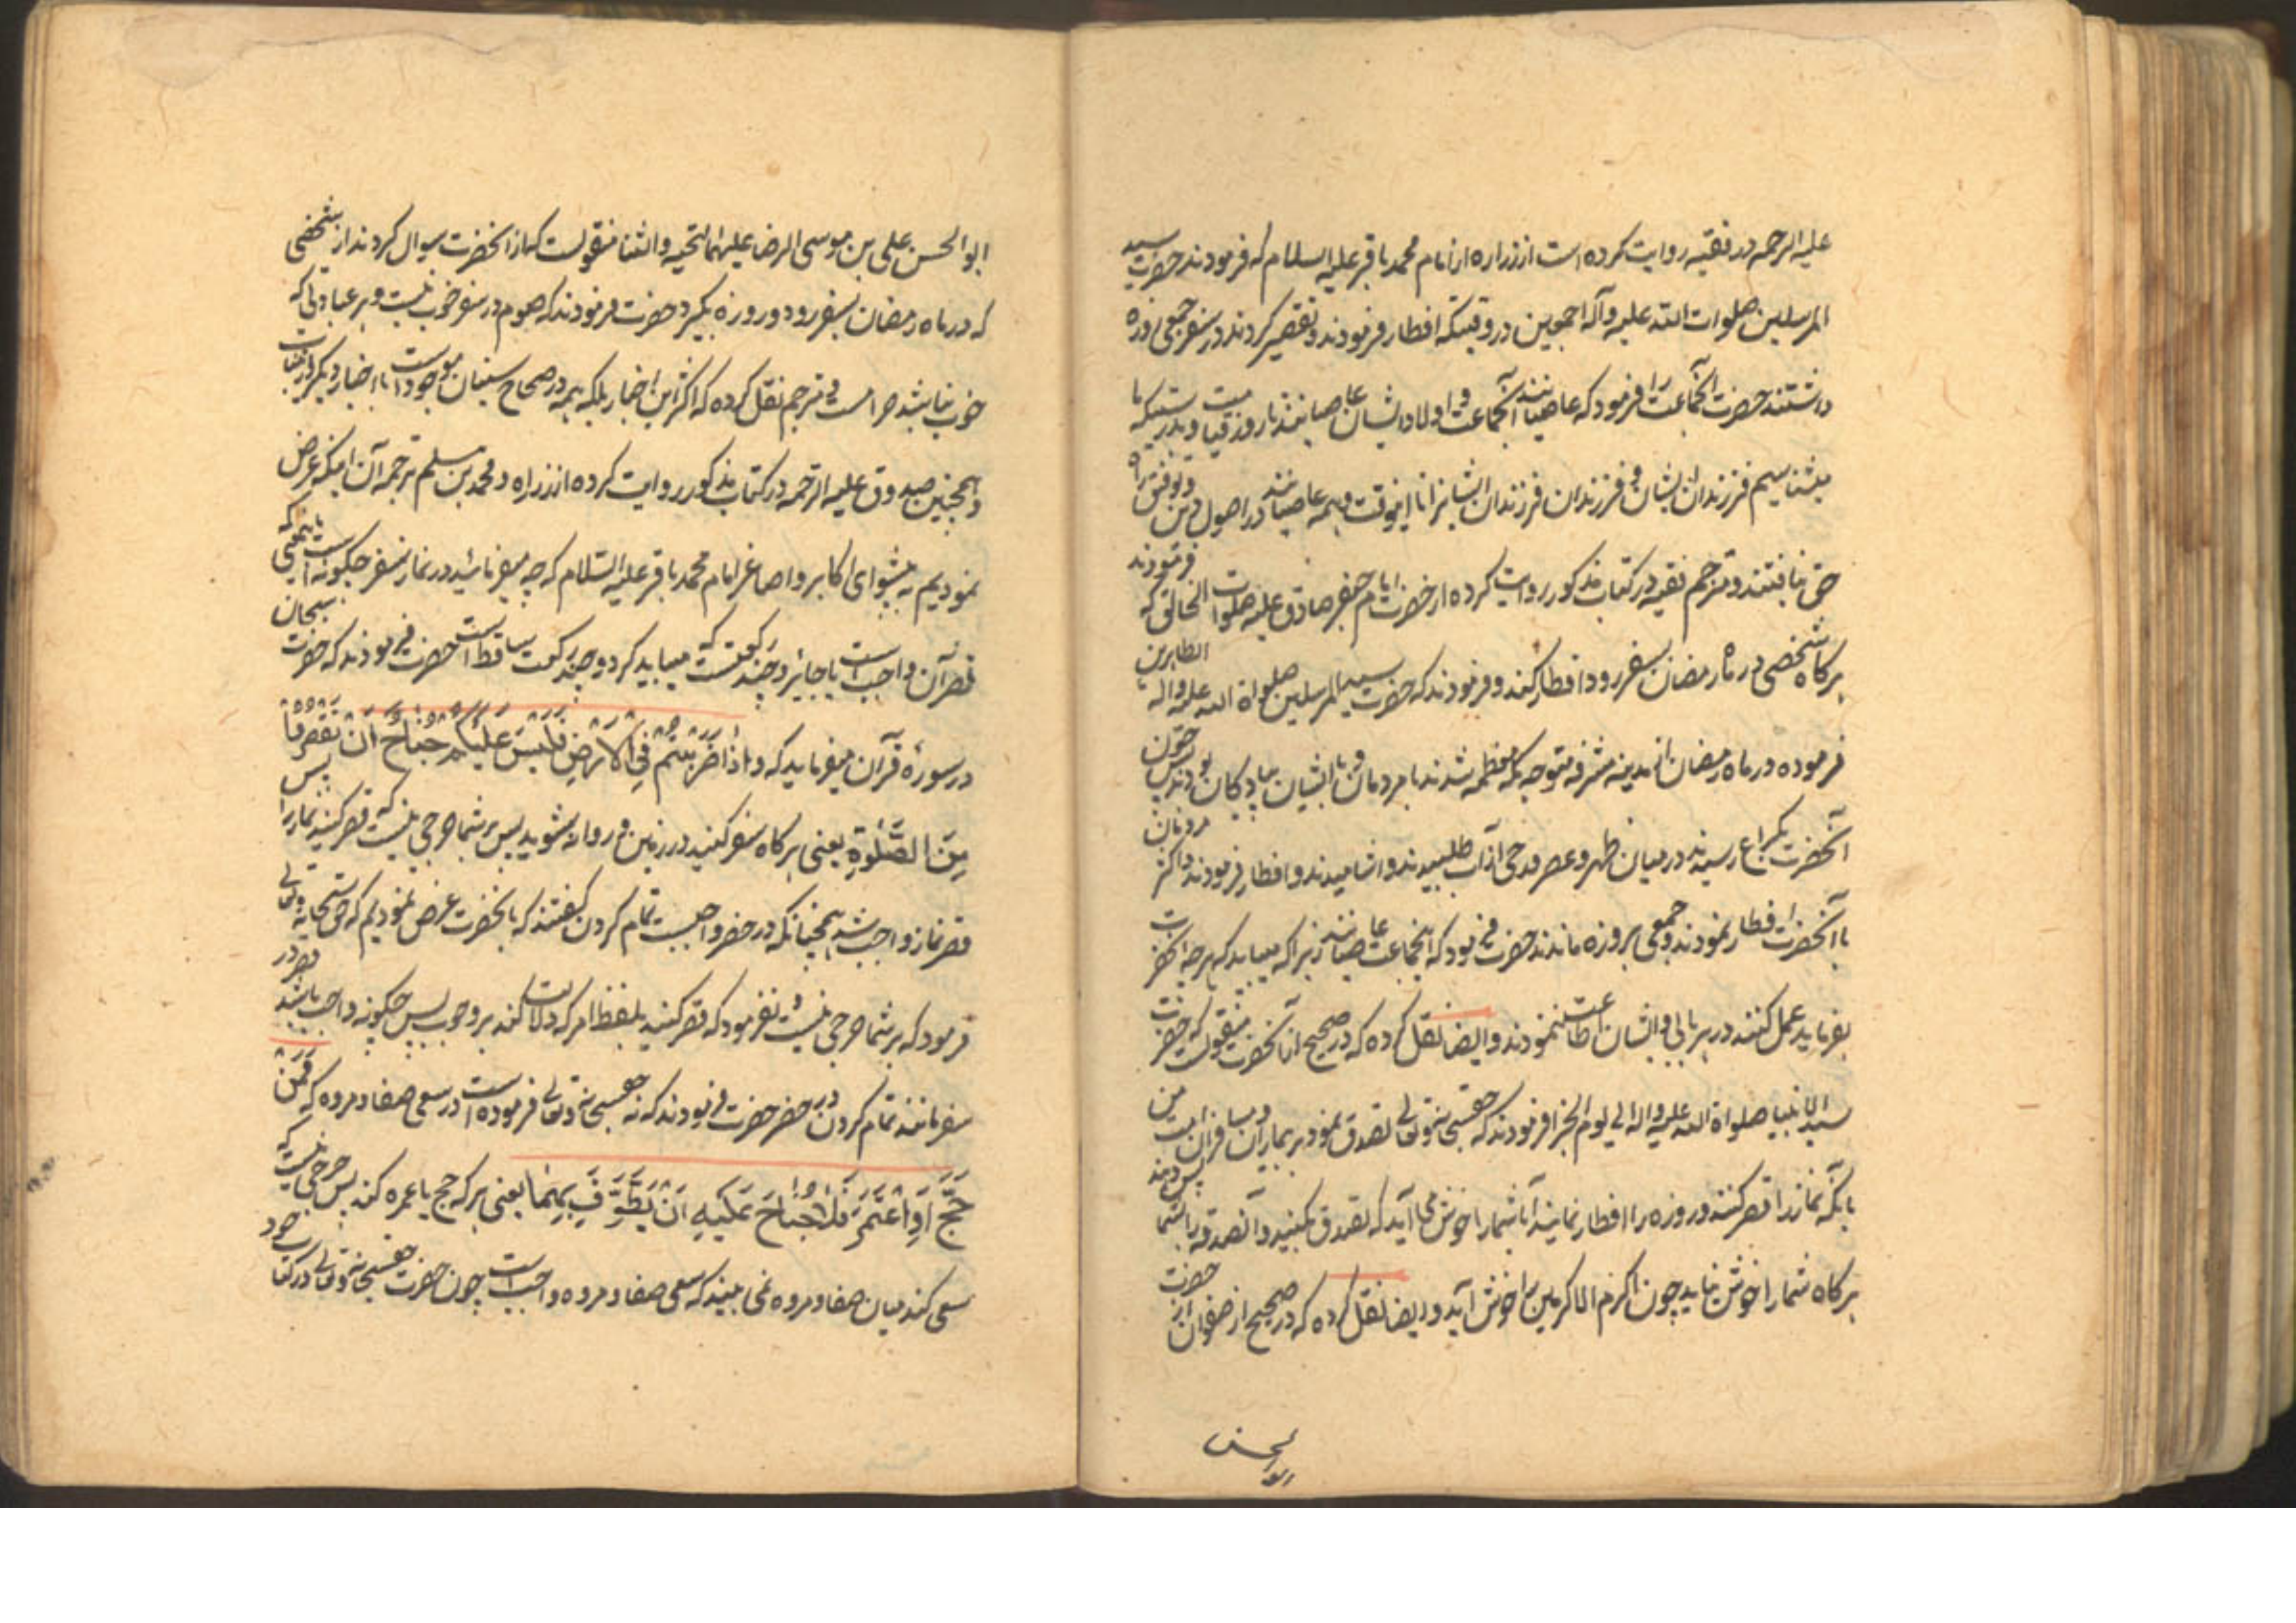 علیه الرحمه در فقیه روایت کرده است از زراره از امام محمد باقر علیه السلام که فرمودند حضرت سید
المرسلین صلوات الله علیه وآله اجمعین در وقتیکه افطار فرمودند و تقصیر کردند در سفر جمعی روزه
داشتند حضرت آنجماعت را فرمود که عاصیانند آنجماعت و اولاد ایشان عاصیانند تا روز قیامت و بدرستیکه ما
میشناسیم فرزندان ایشان و فرزندان فرزندان ایشانرا تا اینوقت و همه عاصیانند در اصول دین و توفیق راه
حق نیافتند و مترجم فقیه در کتاب مذکور روایت کرده از حضرت امام جعفر صادق علیه صلوات الخالق که فرمودند
هرگاه شخصی در ماه رمضان بسفر رود افطار کند و فرمودند که حضرت سید المرسلین صلواة الله علیه واله الطاهرین
فرموده در ماه رمضان از مدینه مشرفه متوجه مکه معظمه شدند با مردمان و با ایشان پیادگان بودند پس چون
آنحضرت بکراع رسیدند در میان ظهر و عصر قدحی از آب طلبیدند و اشامیدند و افطار فرمودند و اکثر مردمان
با آنحضرت افطار نمودند و جمعی بروزه ماندند حضرت فرمود که اینجماعت عاصیانند زیرا که میباید که هرچه آنحضرت
بفرماید عمل کنند در هر بابی و ایشان اطاعت ننمودند و ایضا نقل کرده که در صحیح از آنحضرت منقولست که حضرت
سید الانبیا صلواة الله علیه واله الی یوم الجزا فرمودند که حقسبحانه وتعالی تصدق نمود بر بیماران و مسافران امت من
بانکه نماز را قصر کنند و روزه را افطار نمایند آیا شما را خوش می آید که تصدق بکنید و آن صدقه را بشما پس دهند
هرگاه شما را خوش نیاید چون اکرم الاکرمین را خوش آید و ایضا نقل کرده که در صحیح از صفوان از حضرت
ابوالحسن
ابوالحسن علی بن موسی الرضا علیهما التحیه والثنا منقولست که از آنحضرت سوال کردند از شخصی
که در ماه رمضان بسفر رود و روزه بگیرد حضرت فرمودند که صوم در سفر خوب نیست و هر عبادتی که
خوب نباشد حرامست و مترجم نقل کرده که اکثر این اخبار بلکه همه در صحاح سنیان موجود است با اخبار دیگر از
و همچنین صدوق علیه الرحمه در کتاب مذکور روایت کرده از زراره و محمد بن مسلم ترجمه آن اینکه عرض
نمودیم به پیشوای اکابر و اصاغر امام محمد باقر علیه السلام که چه میفرمائید در نماز سفر چگونه است یعنی که
قصر آن واجب است یا جائز و چند رکعتست که میباید کرد و چند رکعت ساقط است حضرت فرمودند که حضرت سبحان
در سورهٔ قرآن میفرماید که وَاِذَا ضَرَبْتُمْ فِي الْاَرْضِ فَلَيْسَ عَلَيْكُمْ جُنَاحٌ اَنْ تَقْصُرُوا
مِنَ الصَّلٰوةِ یعنی هرگاه سفر کنید در زمین و روانه شوید پس بر شما حرجی نیست که قصر کنید نماز را پس
قصر نماز واجب شد همچنانکه در حضر واجبست تمام کردن گفتند که بانحضرت عرض نمودیم که حق سبحانه وتعالی
فرمود که بر شما حرجی نیست و نفرمود که قصر کنید بلفظ امر که دلالت کند بر وجوب پس چگونه واجب باشد قصر در
سفر مانند تمام کردن در حضر حضرت فرمودند که نه حقسبحانه وتعالی فرموده است در سعی صفا و مروه که فَمَنْ
حَجَّ اَوِ اعْتَمَرَ فَلَا جُنَاحَ عَلَيْهِ اَنْ يَطَّوَّفَ بِهِمَا یعنی هر که حج یا عمره کند پس حرجی نیست که
سعی کند میان صفا و مروه نمی بینید که سعی صفا و مروه واجب است چون حضرت حقسبحانه وتعالی در کتاب خود